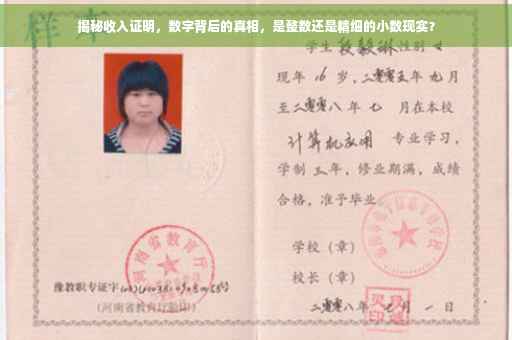 揭秘收入证明，数字背后的真相，是整数还是精细的小数现实？
样本
学生 段毅琳 性别 女
现年 16 岁，二零零五年 九月
至二零零八年 七 月在本校
计算机应用 专业学习，
学制 三 年，修业期满，成绩
合格，准予毕业
学校（章）
校长（章）
二零零八年 七 月 一 日
河南省教育厅
豫教职专证字
(河南省教育厅验印)